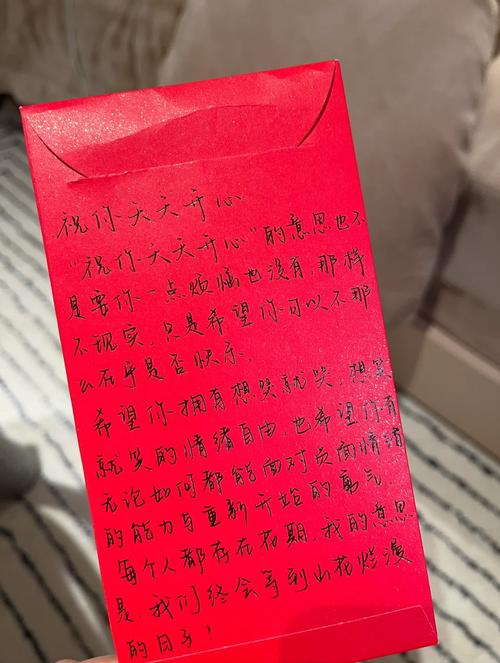 祝你天天开心
“祝你天天开心”的意思也不
是要你一点烦恼也没有，那样
不现实，只是希望你可以不那
么在乎是否快乐，
希望你拥有想哭就哭，想笑
就笑的情绪自由，也希望你有
无论如何都能面对负面情绪
的能力与重新开始的勇气
每个人都存在花期，我的意思
是，我们终会等到山花烂漫
的日子！